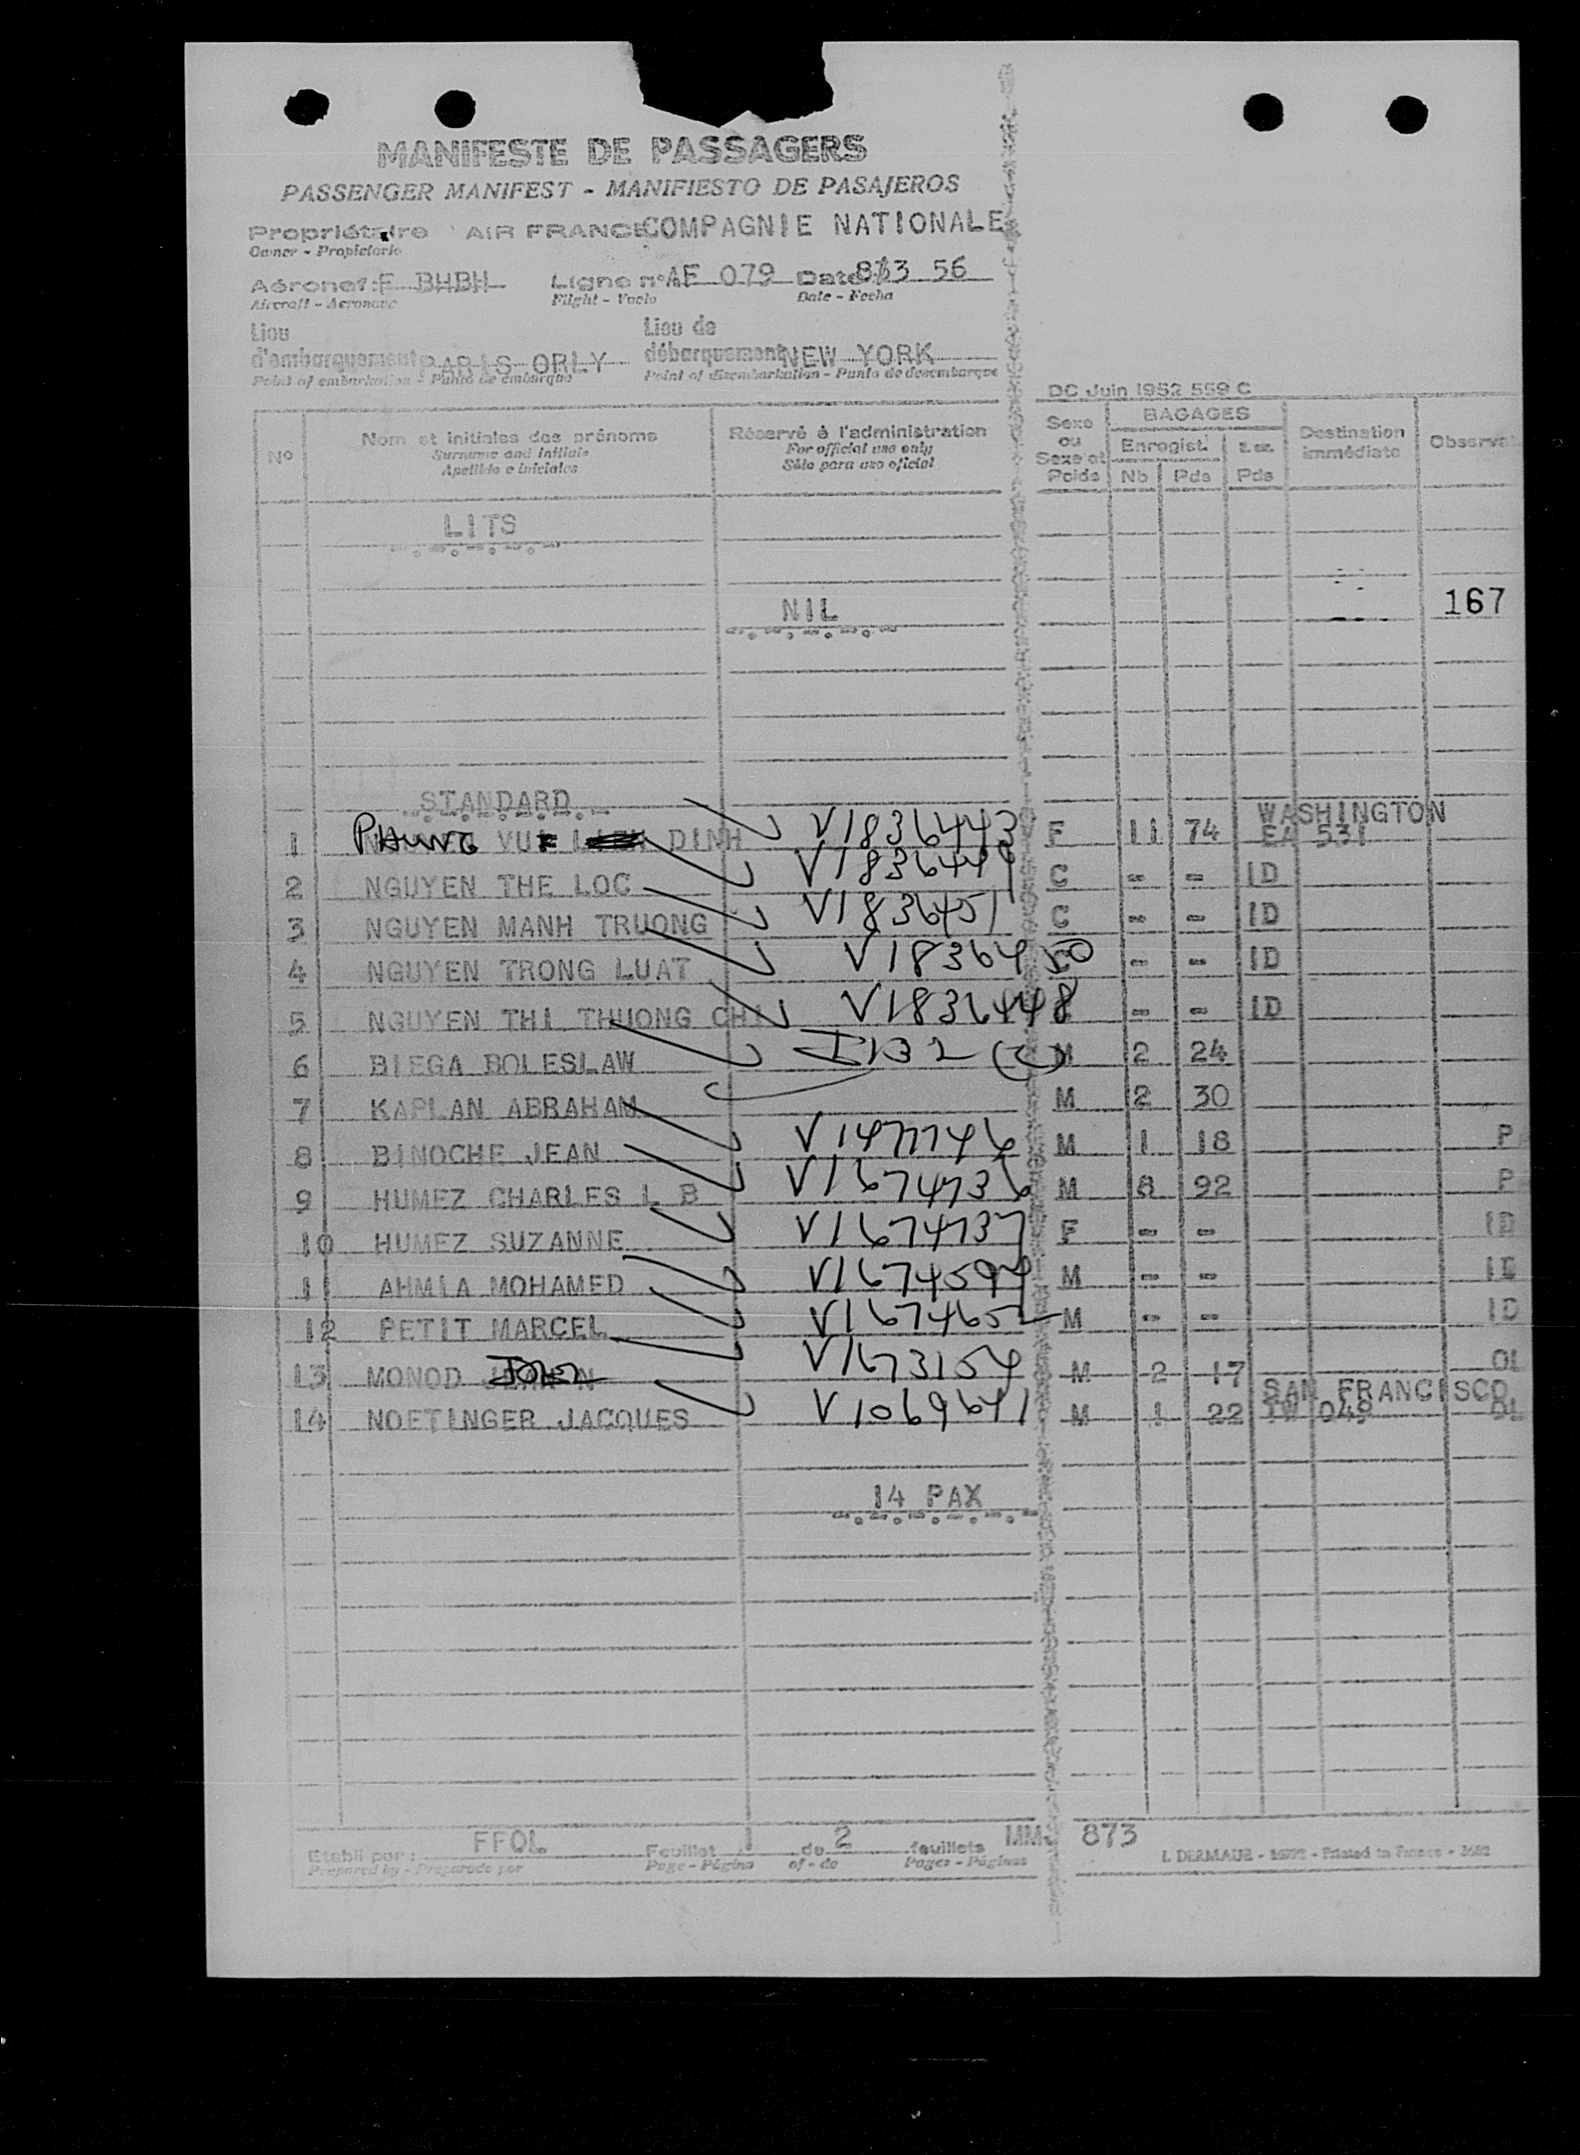 MANIFESTE DE PASSAGERS
PASSENGER MANIFEST - MANIFIESTO DE PASAJEROS
Propriétaire AIR FRANCE COMPAGNIE NATIONALE
Owner - Propietario
Aéronef: F BHBH Ligne n° AF 079 Date 56
Aircraft - Aeronave Flight - Vuelo Date - Fecha
Lieu Lieu de
d'embarquement PARIS ORLY débarquement NEW YORK
Point of embarkation - Punto de embarque Point of disembarkation - Punto de desembarque
DC Juin 1952 559 C
N° Nom et initiales des prénoms Réservé à l'administration Sexe ou Sexe et Poids BAGAGES Destination immédiate Observat
Surname and initials For official use only Enregist.
Apellido e iniciales Sólo para uso oficial Nb Pds Pds
LITS
167
NIL
STANDARD
WASHINGTON
1 PHUNG VU DINH V1836443 F 11 74 EA 531
2 NGUYEN THE LOC V1836449 C - - ID
3 NGUYEN MANH TRUONG V1836451 C - - ID
4 NGUYEN TRONG LUAT V1836450 - - ID
5 NGUYEN THI THUONG CHI V1836448 - - ID
6 BIEGA BOLESLAW M 2 24
7 KAPLAN ABRAHAM M 2 30
8 BINOCHE JEAN V1477746 M 1 18 P
9 HUMEZ CHARLES L B V1674736 M 8 92 P
10 HUMEZ SUZANNE V1674737 F - - ID
11 AHMIA MOHAMED V1674594 M - - ID
12 PETIT MARCEL V1674652 M - - ID
13 MONOD V1673154 M 2 17 OL
SAN FRANCISCO
14 NOETINGER JACQUES V1069641 M 1 22 TW 049 OL
14 PAX
Etabli par : FFOL Feuillet 1 de 2 feuillets 873
Prepared by - Preparado por Page - Página of - de Pages - Páginas Printed in France